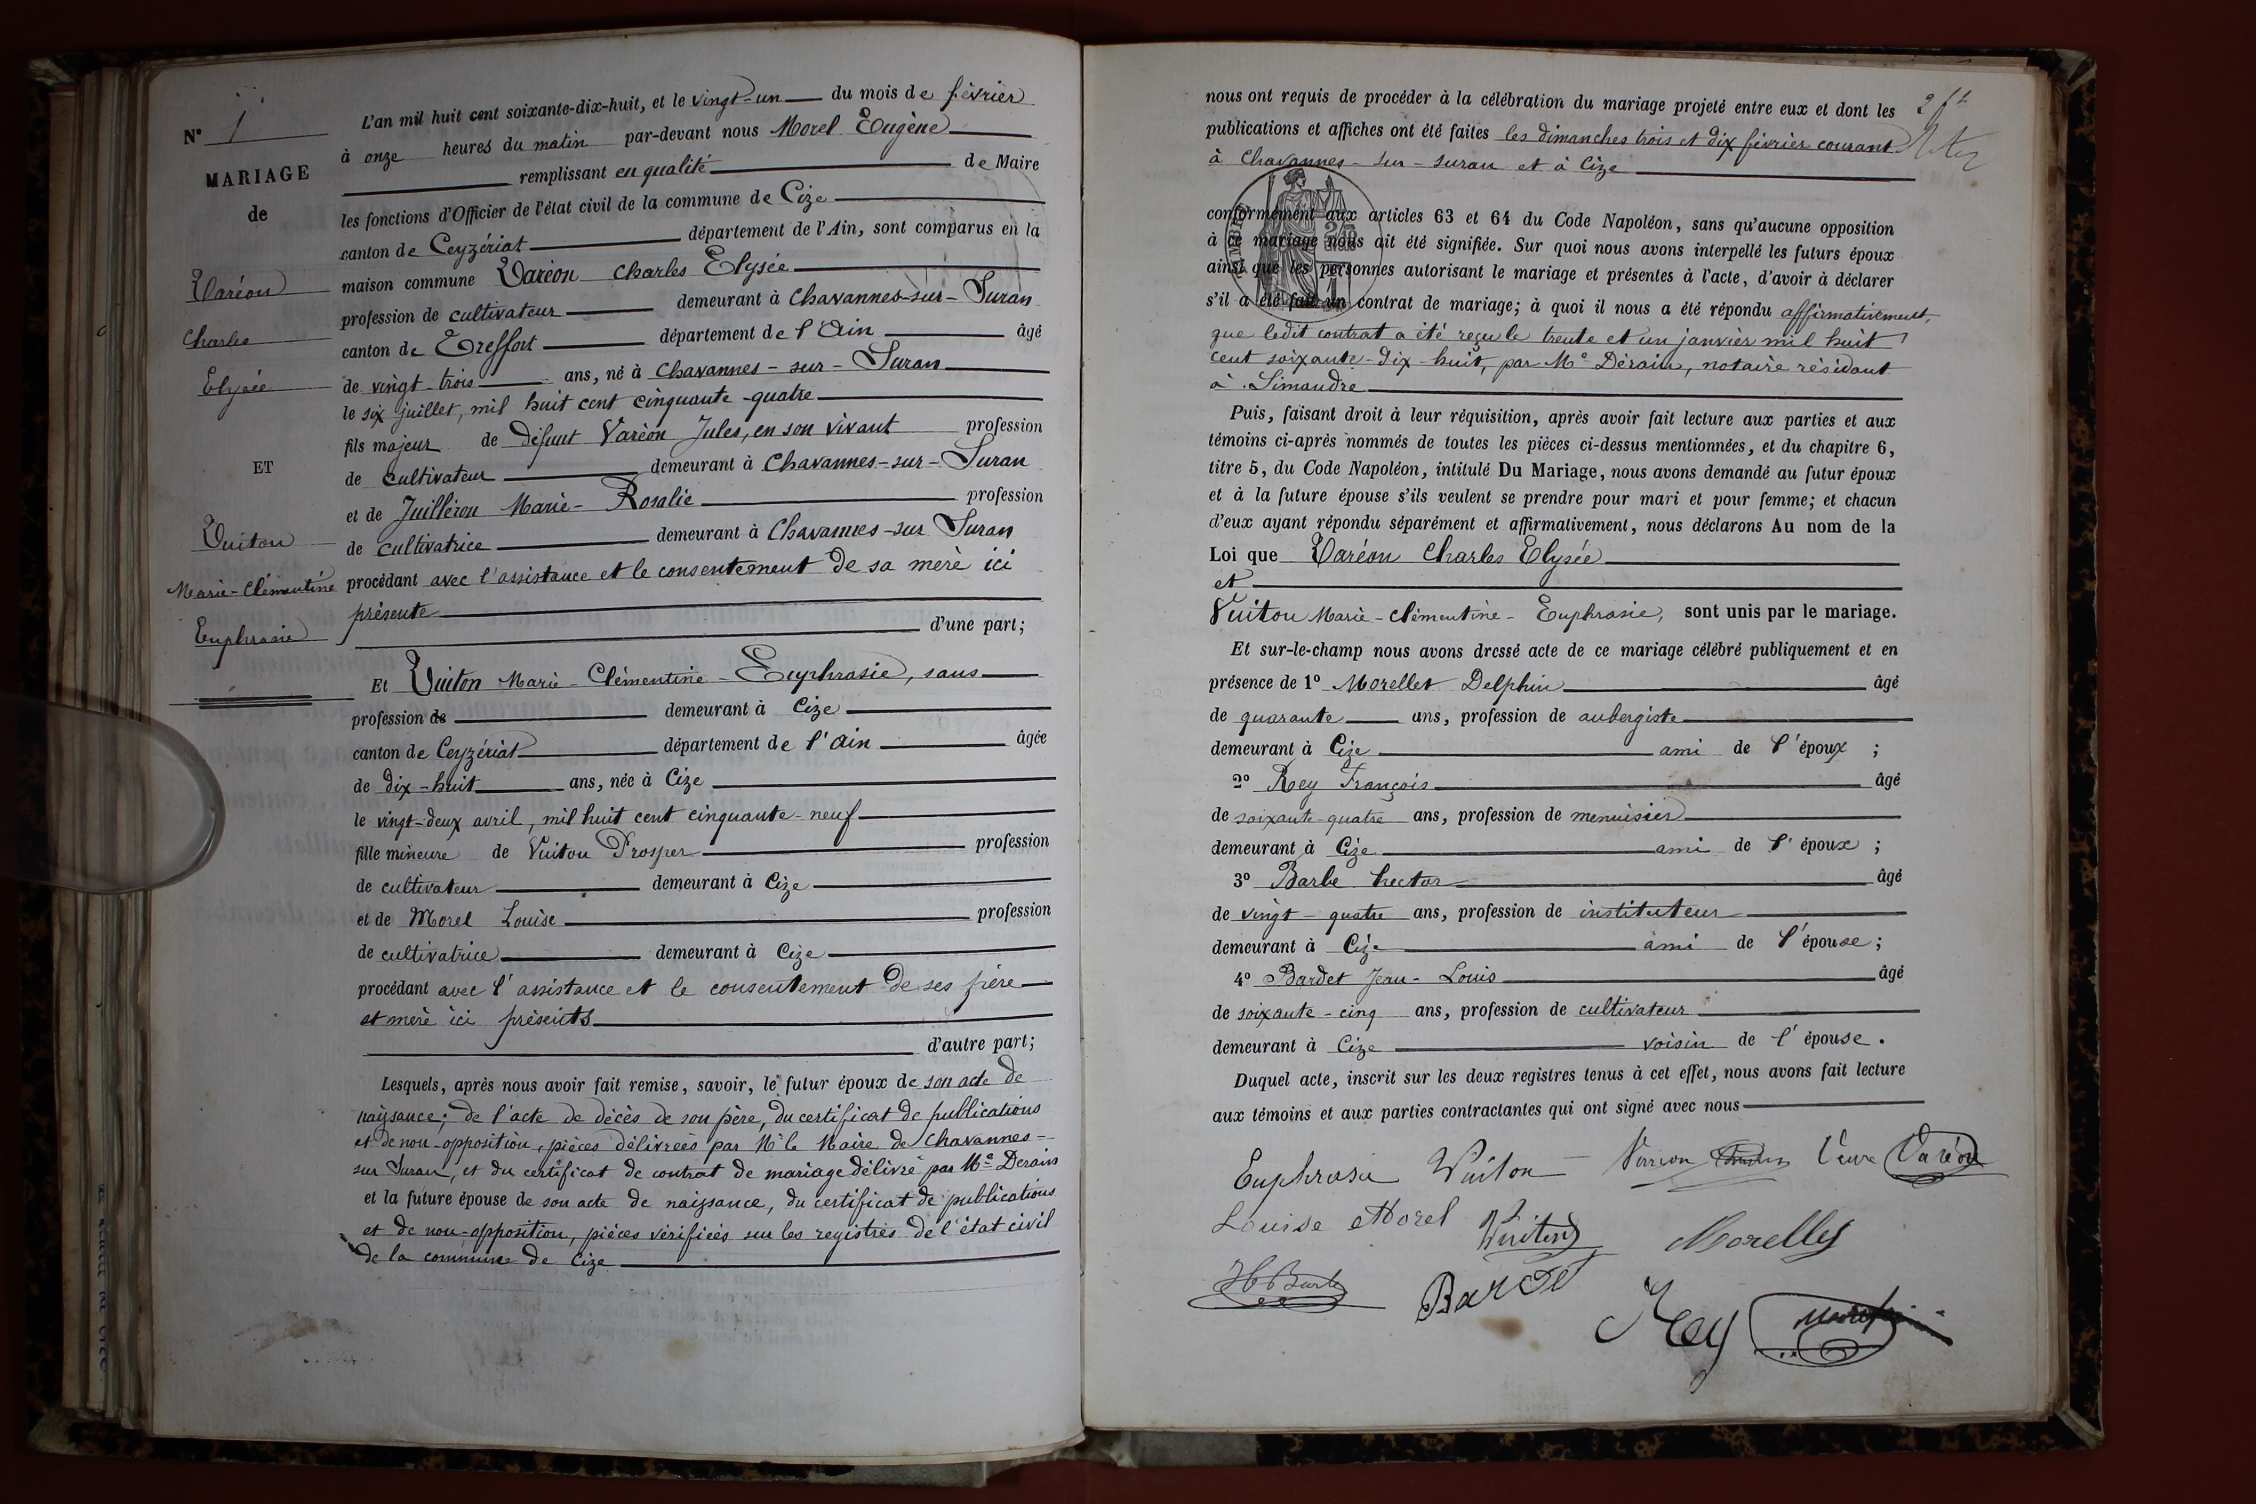 N° 1
MARIAGE
de
Varéon
Charles
Elysée
ET
Vuiton
Marie-Clémentine
Euphrasie
L'an mil huit cent soixante-dix-huit, et le vingt-un du mois de février
à onze heures du matin par-devant nous Morel Eugène
remplissant en qualité de Maire
les fonctions d'Officier de l'état civil de la commune de Cize
canton de Ceyzériat département de l'Ain, sont comparus en la
maison commune Varéon Charles Elysée
profession de cultivateur demeurant à Chavannes-sur-Suran
canton de Treffort département de l'Ain âgé
de vingt-trois ans, né à Chavannes-sur-Suran
le six juillet, mil huit cent cinquante-quatre
fils majeur de défunt Varéon Jules, en son vivant profession
de cultivateur demeurant à Chavannes-sur-Suran
et de Juilléron Marie-Rosalie profession
de cultivatrice demeurant à Chavannes-sur Suran
procédant avec l'assistance et le consentement de sa mère ici
présente
d'une part;
Et Vuiton Marie-Clémentine-Euphrasie, sans
profession de demeurant à Cize
canton de Ceyzériat département de l'Ain âgée
de dix-huit ans, née à Cize
le vingt-deux avril, mil huit cent cinquante-neuf
fille mineure de Vuiton Prosper profession
de cultivateur demeurant à Cize
et de Morel Louise profession
de cultivatrice demeurant à Cize
procédant avec l'assistance et le consentement de ses père
et mère ici présents
d'autre part;
Lesquels, après nous avoir fait remise, savoir, le futur époux de son acte de
naissance; de l'acte de décès de son père, du certificat de publications
et de non-opposition, pièces délivrées par Mr le Maire de Chavannes-
sur Suran, et du certificat de contrat de mariage délivré par Me Derain
et la future épouse de son acte de naissance, du certificat de publications
et de non-opposition, pièces vérifiées sur les registres de l'état civil
de la commune de Cize
nous ont requis de procéder à la célébration du mariage projeté entre eux et dont les
publications et affiches ont été faites les dimanches trois et dix février courant
à Chavannes-sur-suran et à Cize
conformément aux articles 63 et 64 du Code Napoléon, sans qu'aucune opposition
à ce mariage nous ait été signifiée. Sur quoi nous avons interpellé les futurs époux
ainsi que les personnes autorisant le mariage et présentes à l'acte, d'avoir à déclarer
s'il a été fait un contrat de mariage; à quoi il nous a été répondu affirmativement,
que ledit contrat a été reçu le trente et un janvier mil huit
cent soixante-dix-huit, par Me Dérain, notaire résidant
à Simandre
Puis, faisant droit à leur réquisition, après avoir fait lecture aux parties et aux
témoins ci-après nommés de toutes les pièces ci-dessus mentionnées, et du chapitre 6,
titre 5, du Code Napoléon, intitulé Du Mariage, nous avons demandé au futur époux
et à la future épouse s'ils veulent se prendre pour mari et pour femme; et chacun
d'eux ayant répondu séparément et affirmativement, nous déclarons Au nom de la
Loi que Varéon Charles Elysée
et
Vuiton Marie-Clémentine-Euphrasie, sont unis par le mariage.
Et sur-le-champ nous avons dressé acte de ce mariage célébré publiquement et en
présence de 1° Morellet Delphin âgé
de quarante ans, profession de aubergiste
demeurant à Cize ami de l'époux ;
2° Rey François âgé
de soixante-quatre ans, profession de menuisier
demeurant à Cize ami de l'époux ;
3° Barbe hector âgé
de vingt-quatre ans, profession de instituteur
demeurant à Cize ami de l'épouse ;
4° Bardet Jean-Louis âgé
de soixante-cinq ans, profession de cultivateur
demeurant à Cize voisin de l'épouse .
Duquel acte, inscrit sur les deux registres tenus à cet effet, nous avons fait lecture
aux témoins et aux parties contractantes qui ont signé avec nous
Euphrasie Vuiton Veuve Varéon
Louise Morel Vuiton Morellet
H Barbe Bardet Rey Morel